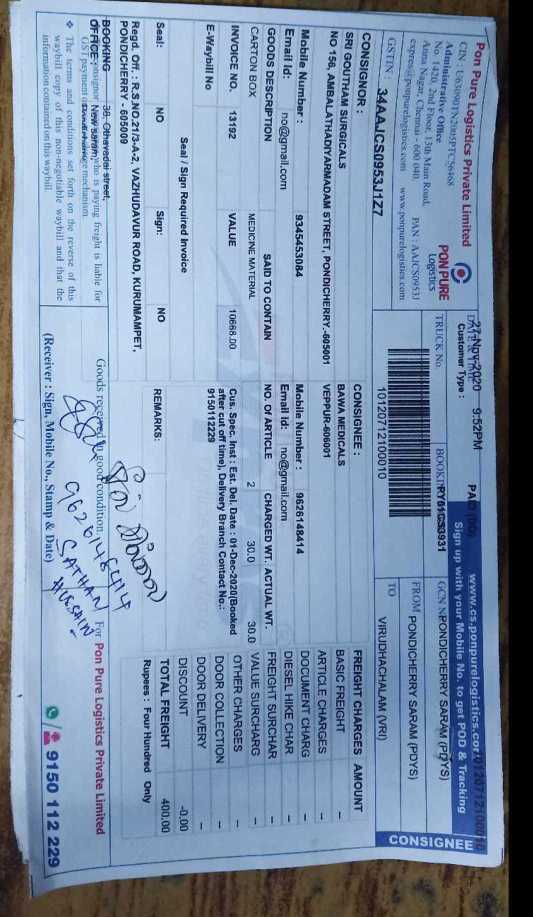 Pon Pure Logistics Private Limited
CIN : U63090TN2005PTC56468
Administrative Office
No. 1420, 2nd Floor, 13th Main Road,
Anna Nagar, Chennai - 600 040. PAN : AAJCS0953J
express@ponpurelogistics.com www.ponpurelogistics.com
GSTIN : 34AAJCS0953J1Z7
PON PURE
LOGISTICS
27-Nov-2020 9:52PM
Customer Type : PAID
TRUCK No.
10120712100010
www.cs.ponpurelogistics.com
Sign up with your Mobile No. to get POD & Tracking
GCN PONDICHERRY SARAM (PDYS)
FROM PONDICHERRY SARAM (PDYS)
TO VIRUDHACHALAM (VRI)
CONSIGNEE
CONSIGNOR :
SRI GOUTHAM SURGICALS
NO 156, AMBALATHADIYARMADAM STREET, PONDICHERRY.-605001
Mobile Number : 9345453084
Email Id: no@gmail.com
CONSIGNEE :
BAWA MEDICALS
VEPPUR-606001
Mobile Number : 9626148414
Email Id: no@gmail.com
GOODS DESCRIPTION SAID TO CONTAIN NO. OF ARTICLE CHARGED WT. ACTUAL WT.
CARTON BOX MEDICINE MATERIAL 2 30.0 30.0
INVOICE NO. 13192 VALUE 10668.00
Cus. Spec. Inst : Est. Del. Date : 01-Dec-2020(Booked
after cut off time), Delivery Branch Contact No.:
9150112229
E-Waybill No
Seal / Sign Required Invoice
Seal: NO Sign: NO
REMARKS:
FREIGHT CHARGES AMOUNT
BASIC FREIGHT –
ARTICLE CHARGES –
DOCUMENT CHARG –
DIESEL HIKE CHAR –
FREIGHT SURCHAR –
VALUE SURCHARG –
OTHER CHARGES –
DOOR COLLECTION –
DOOR DELIVERY –
DISCOUNT -0.00
TOTAL FREIGHT 400.00
Rupees : Four Hundred Only
Regd. Off. : R.S.NO.21/3-A-2, VAZHUDAVUR ROAD, KURUMAMPET,
PONDICHERRY - 605009
BOOKING 38, Othavadai street,
OFFICE : New saram
who is paying freight is liable for
GST payment mechanism.
❖ The terms and conditions set forth on the reverse of this
waybill copy of this non-negotiable waybill and that the
information contained on this waybill.
Goods received in good condition
9626148414
SATHAN
HUSSAIN
(Receiver : Sign, Mobile No., Stamp & Date)
For Pon Pure Logistics Private Limited
9150 112 229